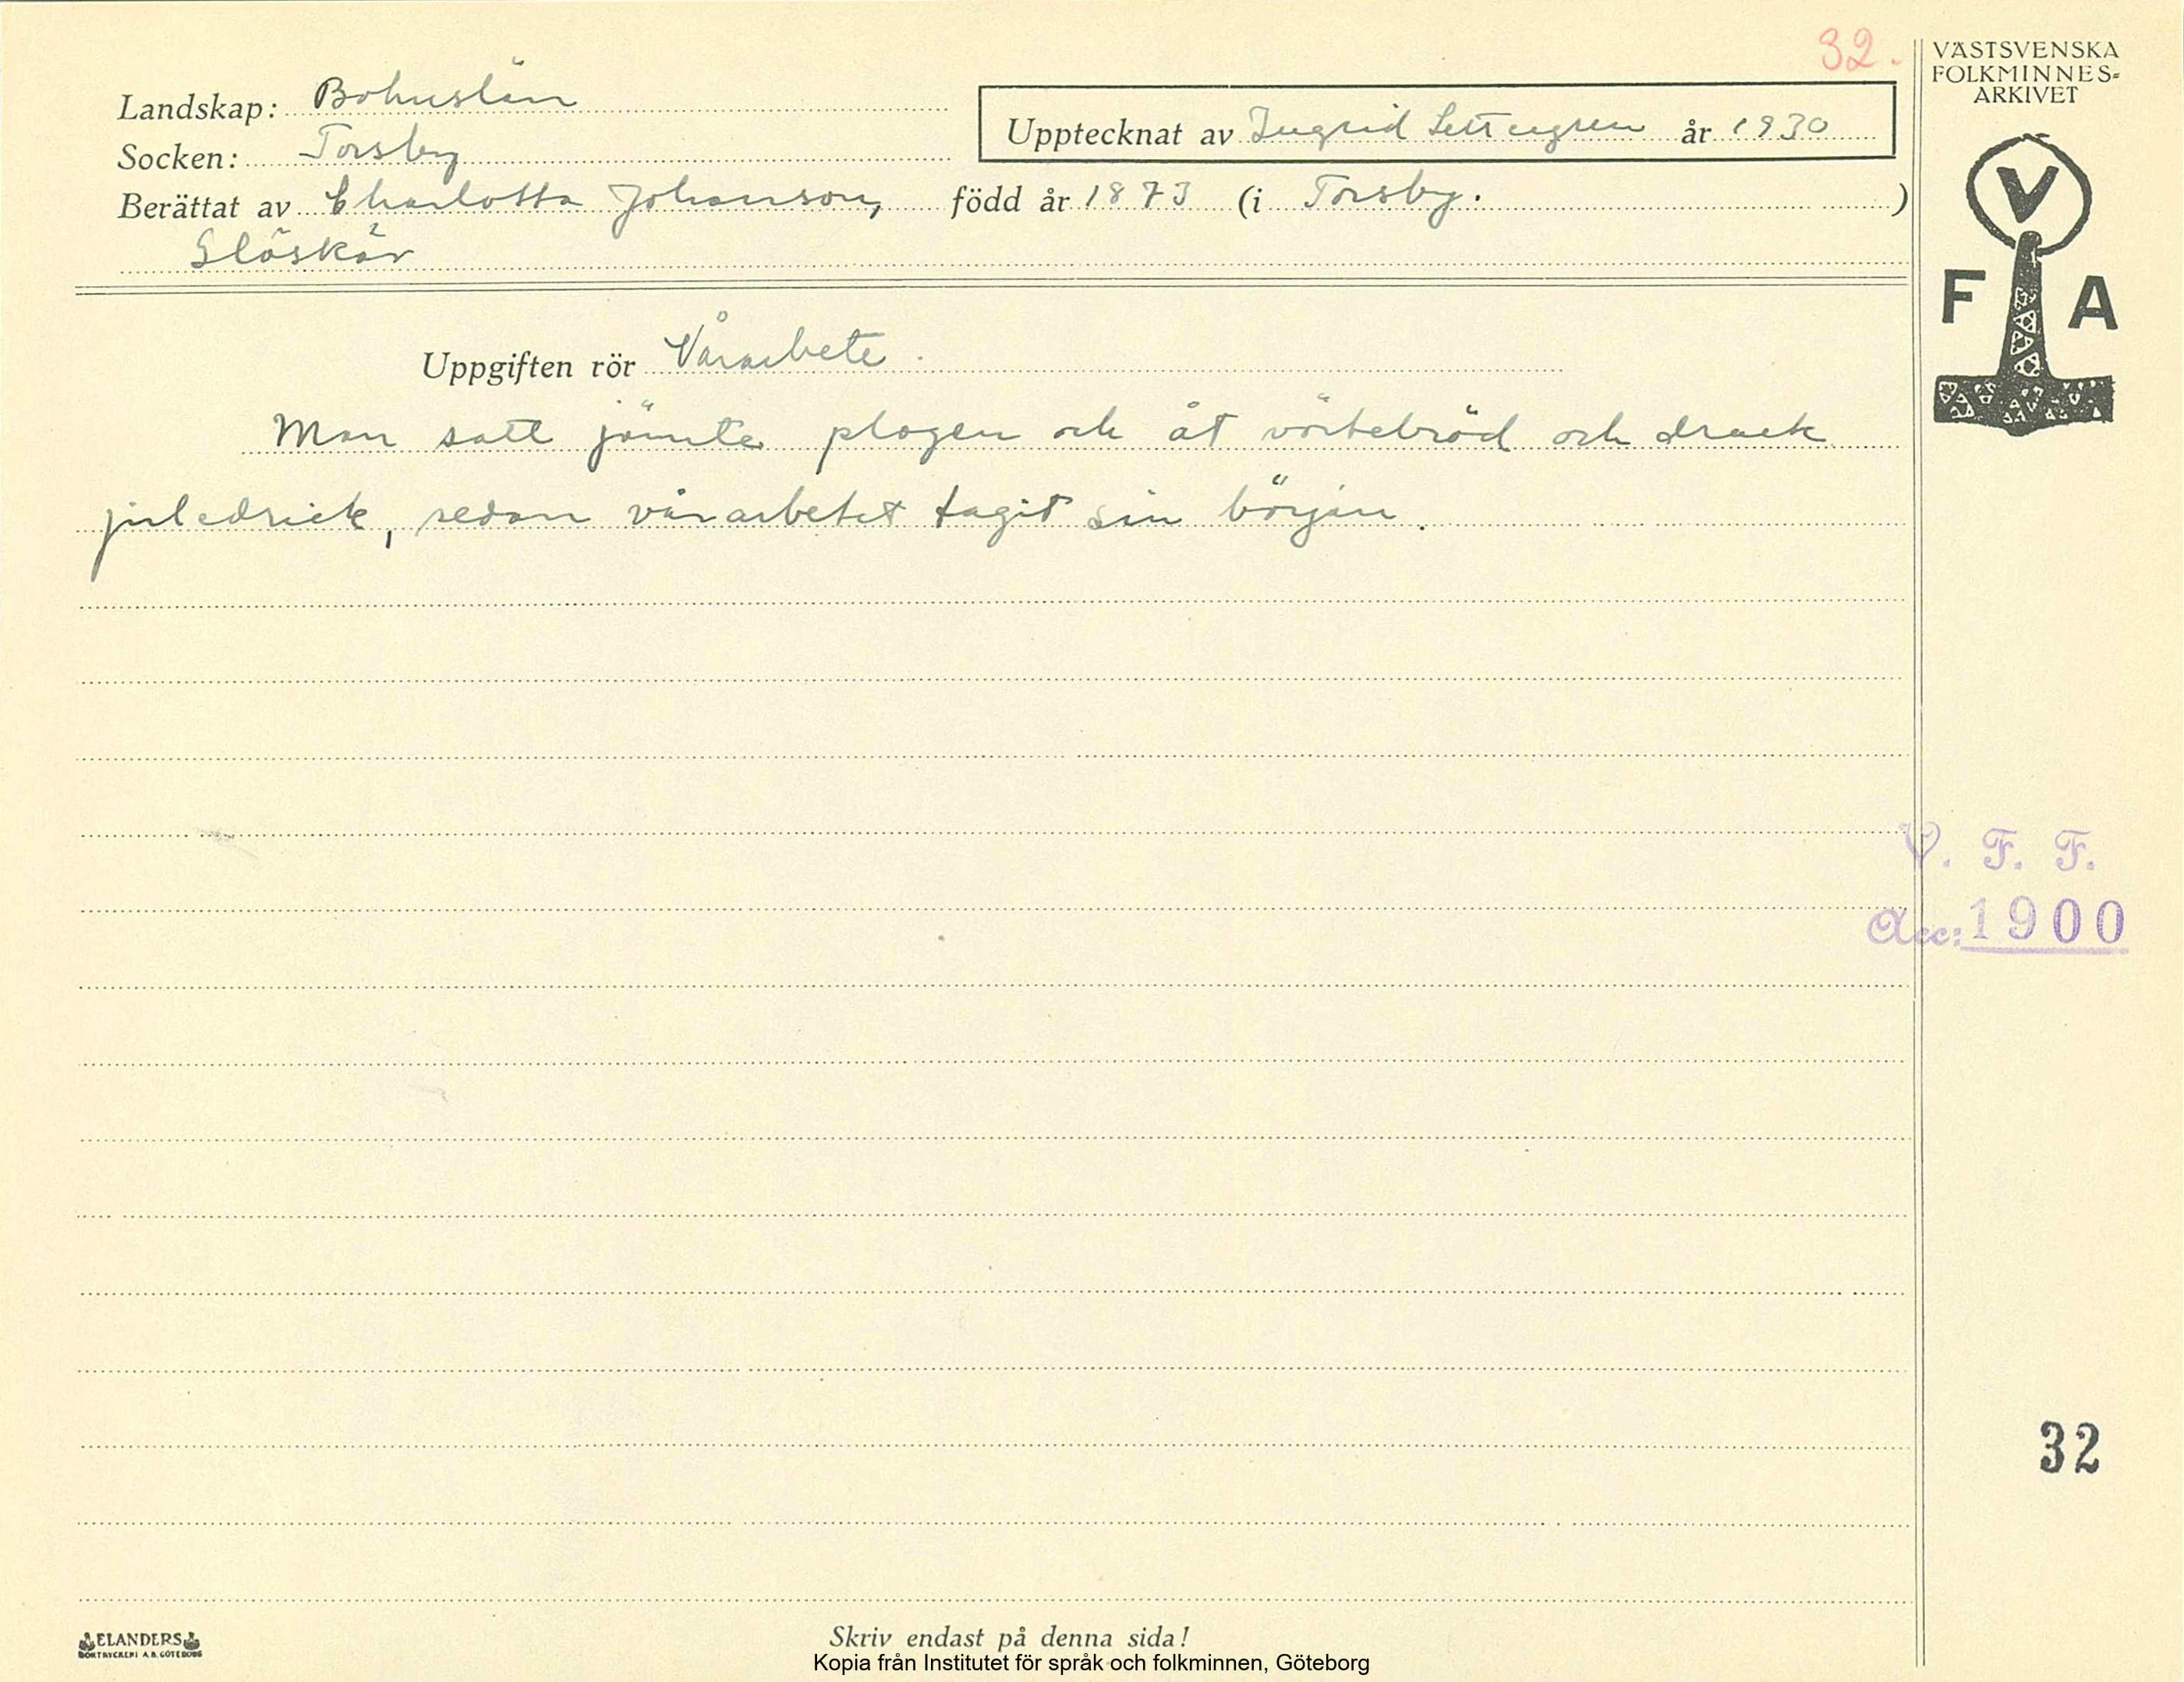 32.
VÄSTSVENSKA
FOLKMINNES-
ARKIVET
Landskap: Bohuslän
Upptecknat av Ingrid år 1930
Socken: Torsby
Berättat av Charlotta Johanson, född år 1873 (i Torsby. )
Glöskär
V
F A
Uppgiften rör Vårarbete.
Man satt jämte plogen och åt vörtebröd och drack
juledrick, sedan vårarbetet tagit sin början.
V. F. F.
Acc: 1900
32
ELANDERS
BOKTRYCKERI A.B. GÖTEBORG
Skriv endast på denna sida!
Kopia från Institutet för språk och folkminnen, Göteborg